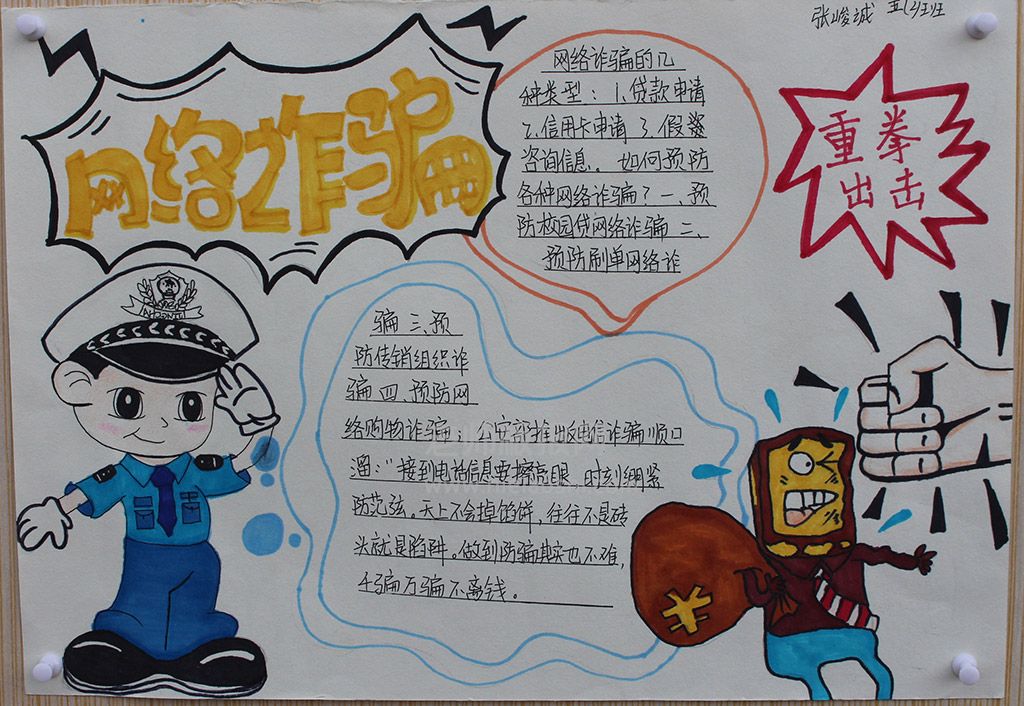 张峻诚 五(2)班
网络诈骗
网络诈骗的几
种类型:1、贷款申请
2、信用卡申请 3、假装
咨询信息。如何预防
各种网络诈骗?一、预
防校园贷网络诈骗 二、
预防刷单网络诈
重拳
出击
骗 三、预
防传销组织诈
骗 四、预防网
络购物诈骗;公安部推出版电信诈骗顺口
溜:"接到电话信息要擦亮眼,时刻绷紧
防范弦。天上不会掉馅饼,往往不是砖
头就是陷阱。做到防骗其实也不难,
千骗万骗不离钱。